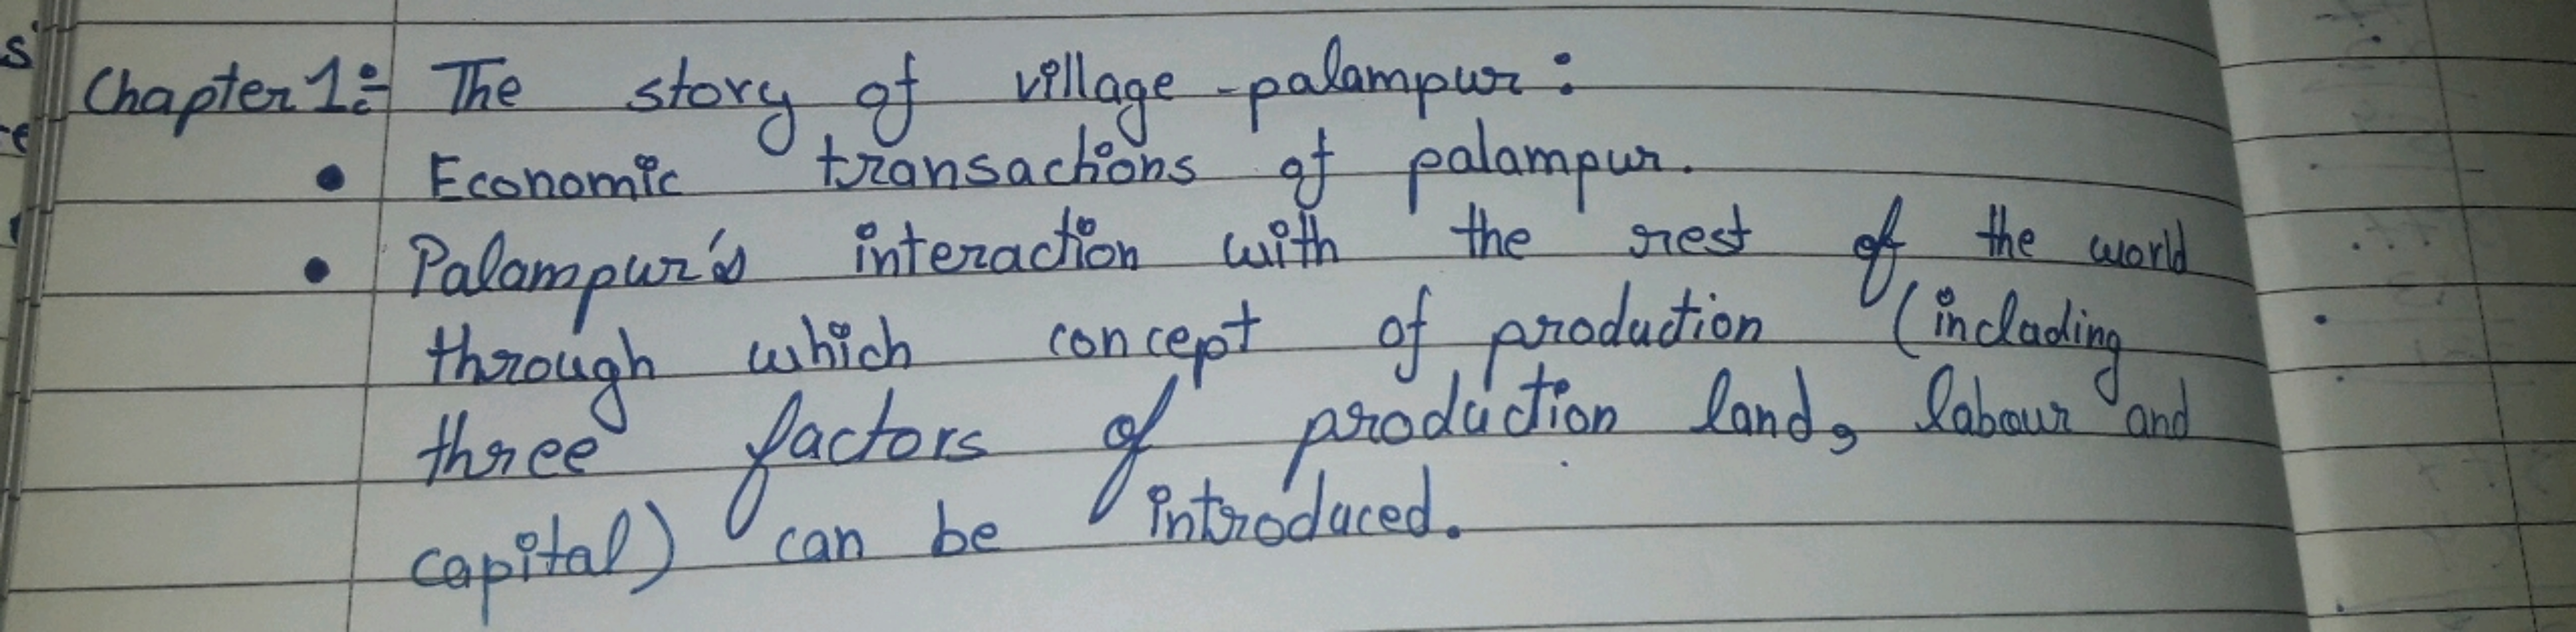 Chapter 1:- The story of village -palampur:
• Economic transactions of palampur.
• Palampur's interaction with the rest of the world
through which concept of production (including
three factors of production land, labour and
capital) can be introduced.